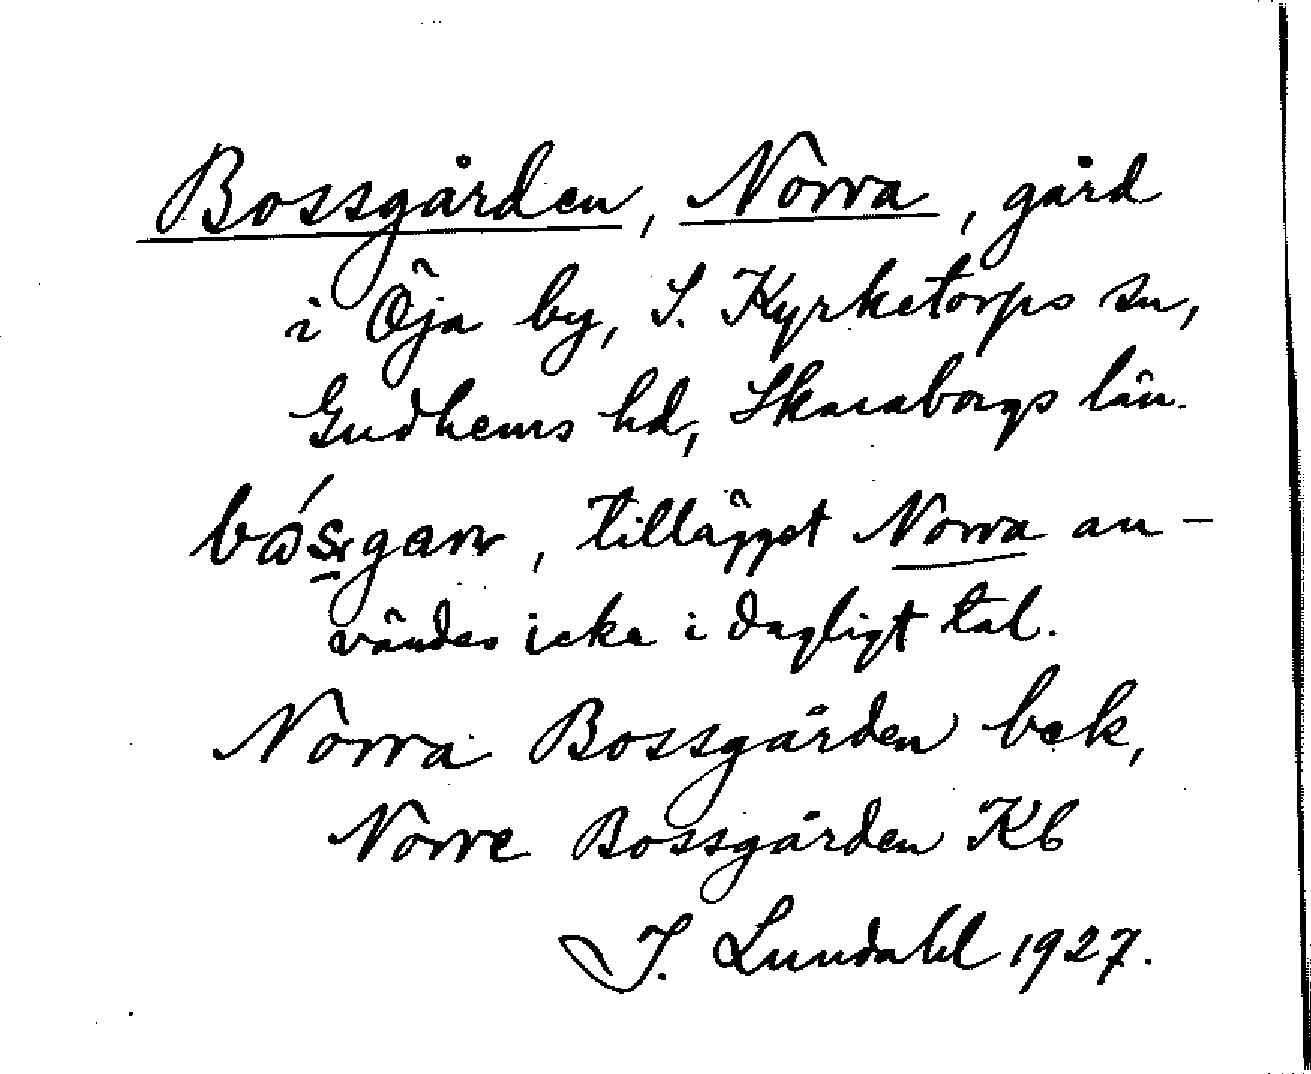 Bossgården, Norra, gård
i Öja by, S. Kyrketorps sn,
Gudhems hd, Skaraborgs län.
, tillägget Norra an-
vändes icke i dagligt tal.
Norra Bossgården bek,
Norre Bossgården Kb
I. Lundahl 1927.